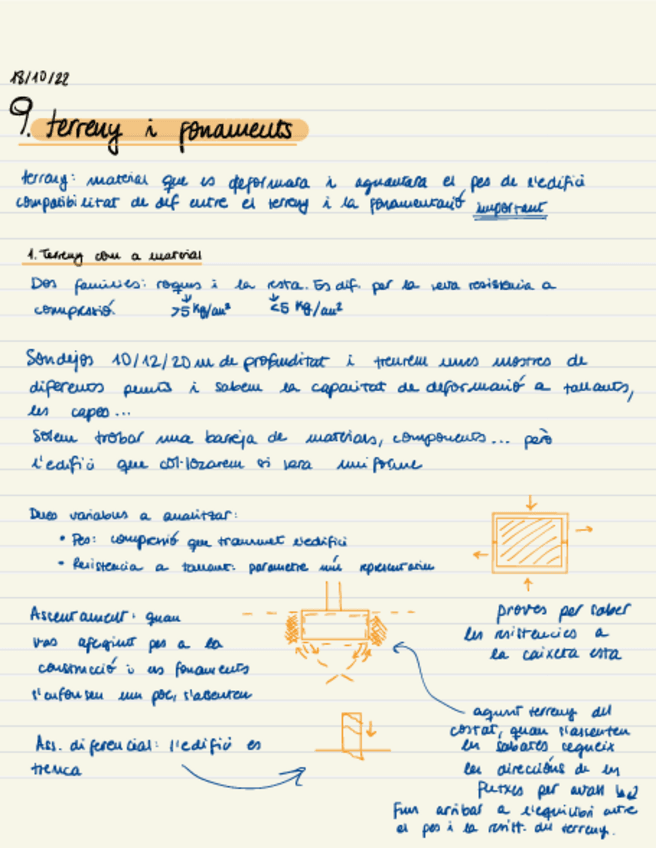 18/10/22
9. terreny i fonaments
terreny: material que es deformarà i aguantarà el pes de l'edifici
compatibilitat de def entre el terreny i la fonamentació important
1. Terreny com a material
Dos famílies: roques i la resta. Es dif. per la seva resistència a
compressió. >5 kg/cm² <5 kg/cm²
Sondejos 10/12/20 m de profunditat i treurem unes mostres de
diferents punts i sabem la capacitat de deformació a tallants,
les capes...
Solem trobar una barreja de materials, components... però
l'edifici que col·locarem si serà uniforme
Dues variables a analitzar:
• Pes: compressió que transmet l'edifici
• Resistencia a tallant: parametre més representatiu
proves per saber
les resistencies a
la caixeta esta
Assentament: quan
vas afegint pes a la
construcció i els fonaments
s'enfonsen un poc, s'assenten
Ass. diferencial: l'edifici es
trenca
aquest terreny del
costat, quan s'assenten
les sabates segueix
les direccións de les
fletxes per avall
Fins arribar a l'equilibri entre
el pes i la resist. del terreny.